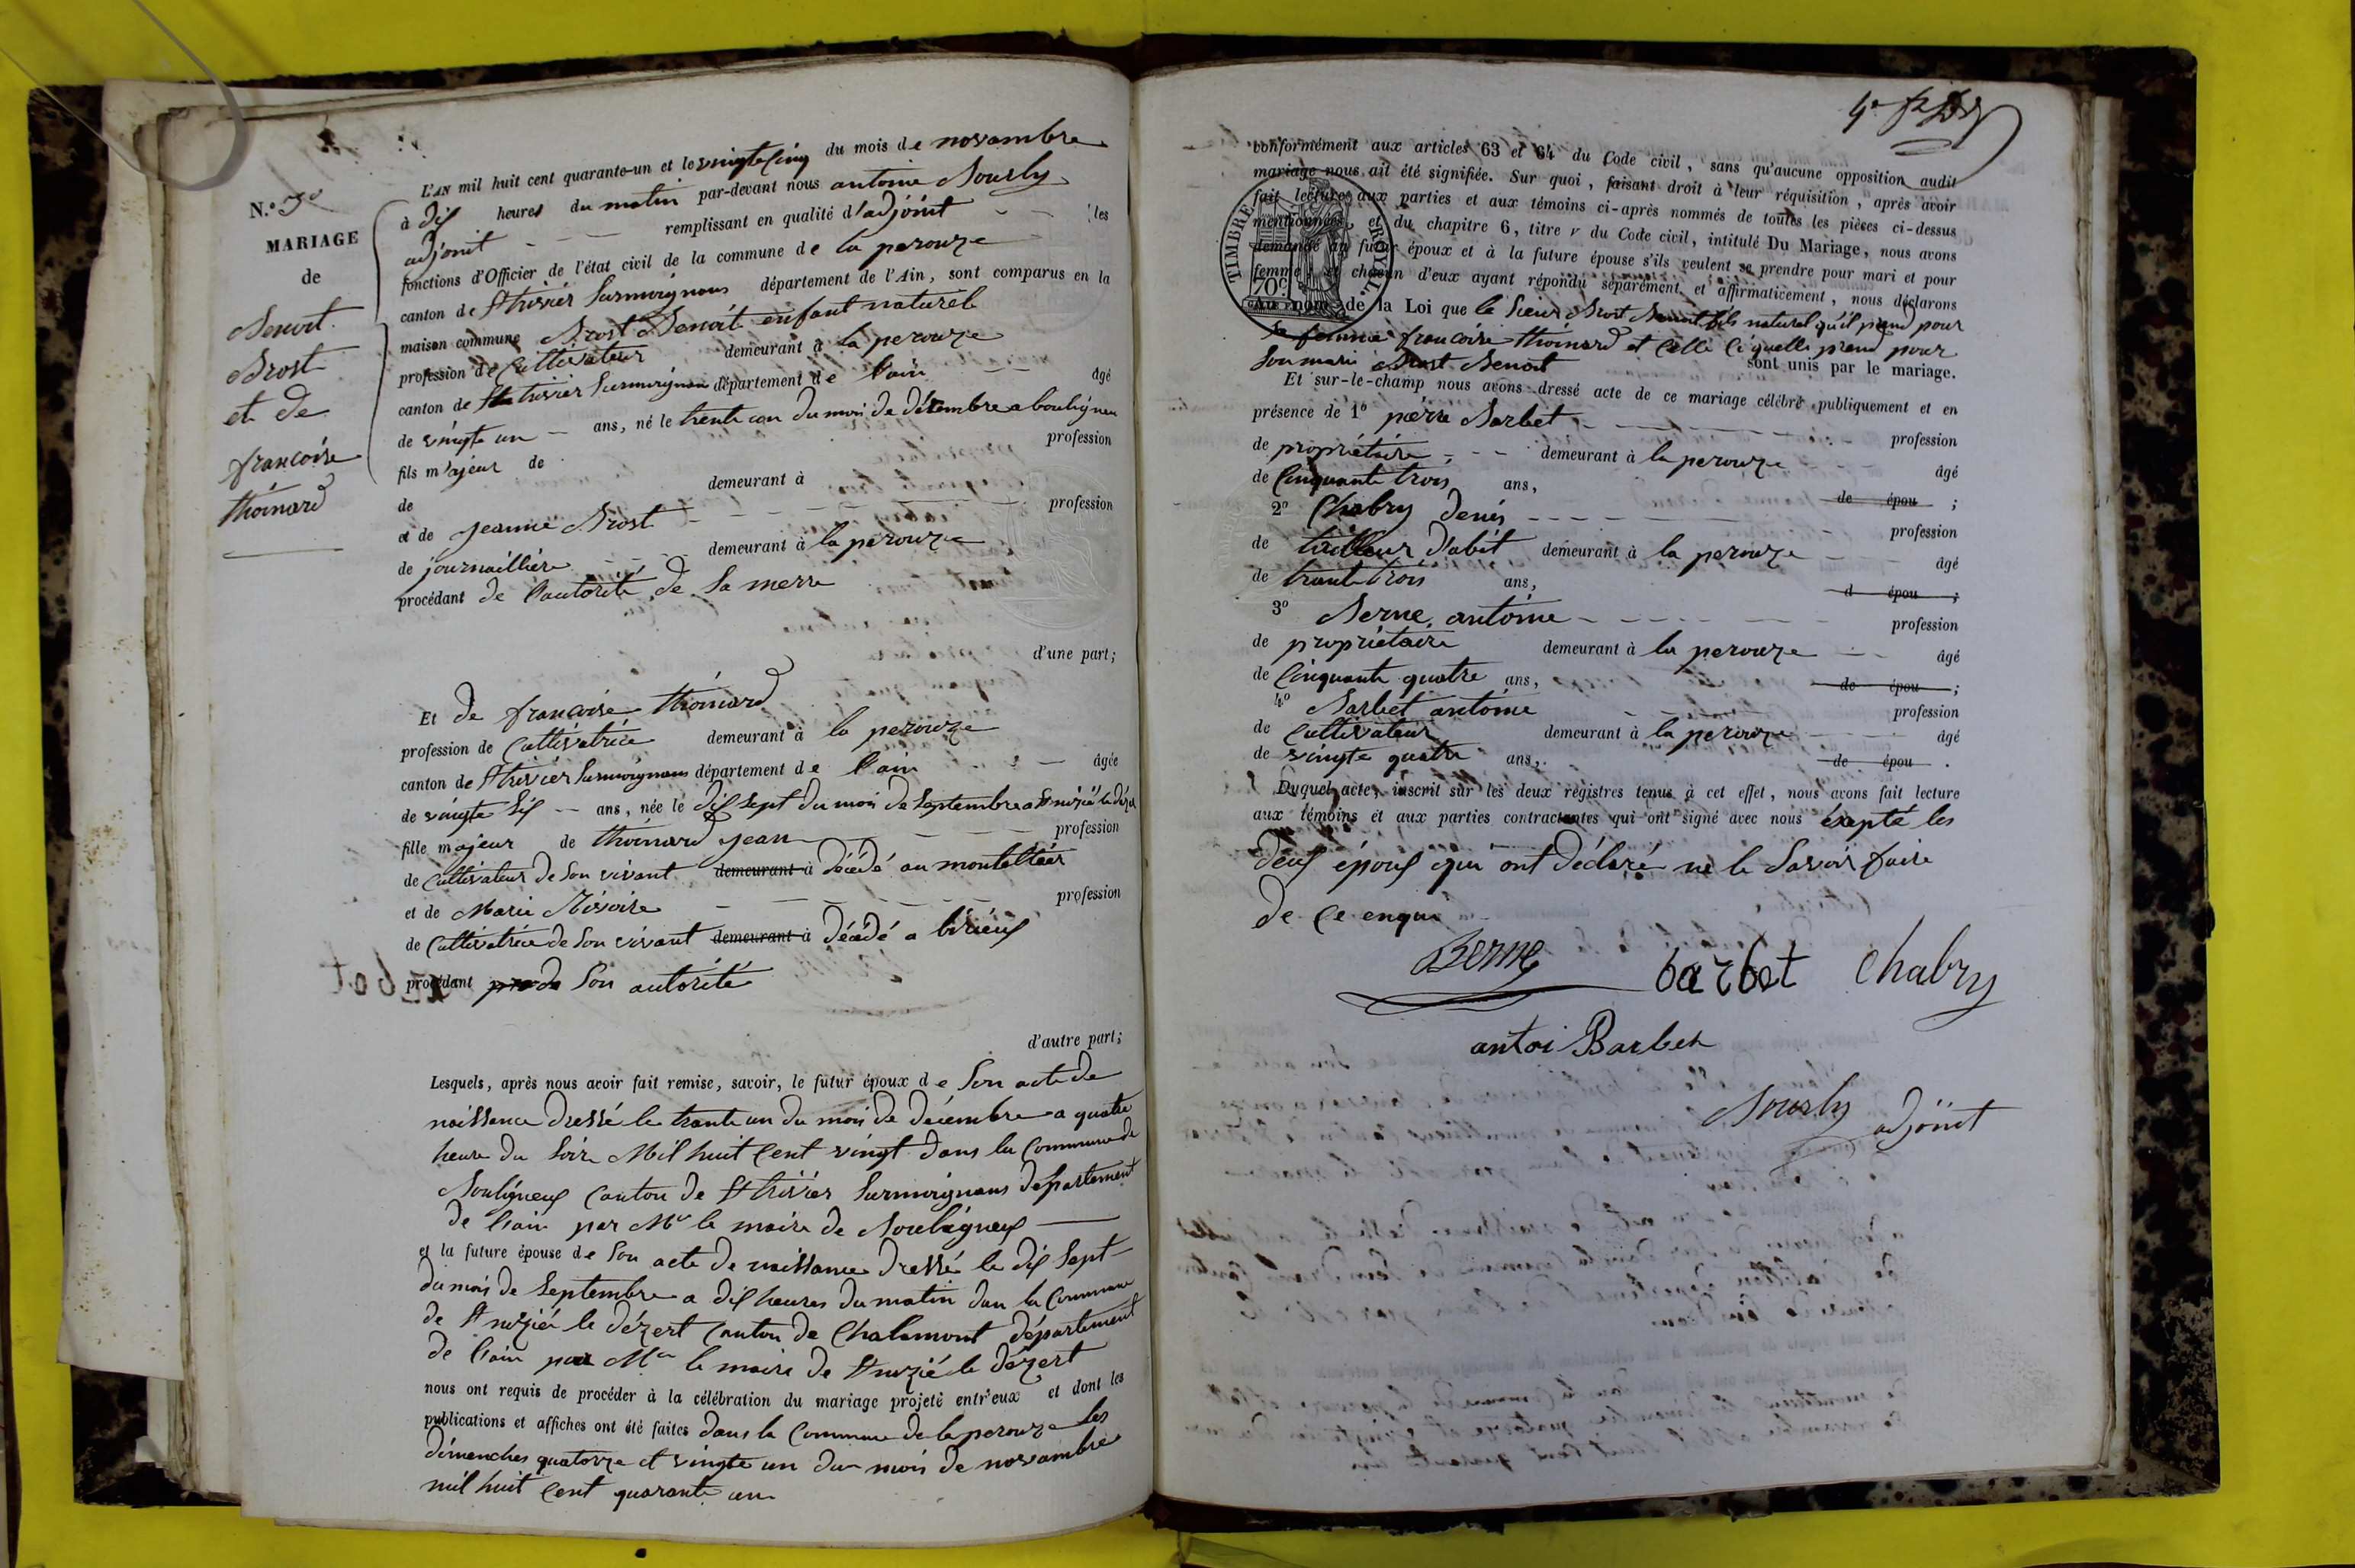 N.º 5e
MARIAGE
de
Benoit
Brost
et de
francoise
thoinard
L'AN mil huit cent quarante-un et le vingte cinq du mois de novambre
à dix heures du matin par-devant nous antoine Bourly
adjoint remplissant en qualité d'adjoint les
fonctions d'Officier de l'état civil de la commune de la perouze
canton de St trivier Surmoignans département de l'Ain, sont comparus en la
maison commune Brost Benoit enfant naturel
profession de Cultivateur demeurant à la perouze
canton de St trivier Surmoignans département de l'ain âgé
de vingte un ans, né le trente un du moi de décembre a bouligneu
fils majeur de profession
de demeurant à
et de jeanne Brost profession
de journaillière demeurant à la perouze
procédant de l'autorité de Sa merre
d'une part;
Et de francoise thoinard
profession de Cultivatrice demeurant à la perouze
canton de St trivier Surmoignans département de l'ain âgée
de vingte Six ans, née le dix Sept du moi de Septembre a St nizié le dézert
fille majeur de thoinard jean profession
de Cultivateur de Son vivant demeurant à décédé au montellier
et de Marie profession
de Cultivatrice de Son vivant demeurant à décédé a birieux
procédant de Son autorité
d'autre part;
Lesquels, après nous avoir fait remise, savoir, le futur époux de Son acte de
naissance dressé le trante un du moi de décembre a quatre
heure du Soire Mil huit Cent vingt dans la Commune de
Bouligneux Canton de St trivier Surmoignans département
de l'ain par Mr le maire de Bouligneux
et la future épouse de Son acte de naissance dressé le dix Sept
du moi de Septembre a dix heures du matin dan la Commune
de St nizié le dézert Canton de Chalamont département
de l'ain par Mr le maire de St nizié le dézert
nous ont requis de procéder à la célébration du mariage projeté entr'eux et dont les
publications et affiches ont été faites dans la Commune de la perouze les
dimenches quatorze et vingte un du mois de novambre
mil huit Cent quarante un
conformément aux articles 63 et 64 du Code civil, sans qu'aucune opposition audit
mariage nous ait été signifiée. Sur quoi, faisant droit à leur réquisition, après avoir
fait lecture aux parties et aux témoins ci-après nommés de toutes les pièces ci-dessus
mentionnées, et du chapitre 6, titre v du Code civil, intitulé Du Mariage, nous avons
demandé au futur époux et à la future épouse s'ils veulent se prendre pour mari et pour
femme; et chacun d'eux ayant répondu séparément et affirmativement, nous déclarons
au nom de la Loi que le Sieur Brost Benoit fils naturel qu'il prend pour
Sa femme francoise thoinard et Celle Ci quelle prend pour
Son mari Brost Benoit sont unis par le mariage.
TIMBRE ROYAL
70c
Et sur-le-champ nous avons dressé acte de ce mariage célébré publiquement et en
présence de 1º pierre Barbet profession
de propriétaire demeurant à la perouze âgé
de Cinquante trois ans, de épou ;
2º Chabry denis profession
de tailleur d'abit demeurant à la perouze âgé
de trante trois ans, d épou ;
3º Berne antoine profession
de propriétaire demeurant à la perouze âgé
de Cinquante quatre ans, de épou ;
4º Barbet antoine profession
de Cultivateur demeurant à la perouze âgé
de vingte quatre ans, de épou .
Duquel acte, inscrit sur les deux registres tenus à cet effet, nous avons fait lecture
aux témoins et aux parties contractantes qui ont signé avec nous éxepté les
deux époux qui ont déclaré ne le Savoir faire
de Ce enqui
Berne barbet Chabry
antoi Barbet
Bourly adjoint